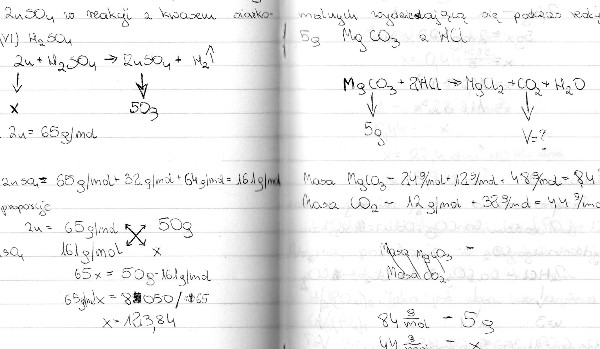 ZnSO4 w reakcji z kwasem siarko-
(VI) H2SO4
Zn + H2SO4 → ZnSO4 + H2↑
x 50g
Zn = 65g/mol
ZnSO4 = 65g/mol + 32g/mol + 64g/mol = 161g/mol
Zn = 65g/mol 50g
161g/mol x
65x = 50g · 161g/mol
65g/mol x = 8050 / :65
x = 123,84
molnych wydzielającą się podczas
5g MgCO3 z HCl
MgCO3 + 2HCl → MgCl2 + CO2 + H2O
5g V=?
Masa MgCO3 – 24g/mol + 12g/mol + 48g/mol = 84
Masa CO2 – 12g/mol + 32g/mol = 44g/mol
Masa MgCO3 =
Masa CO2
84 g/mol – 5g
44 g/mol – x